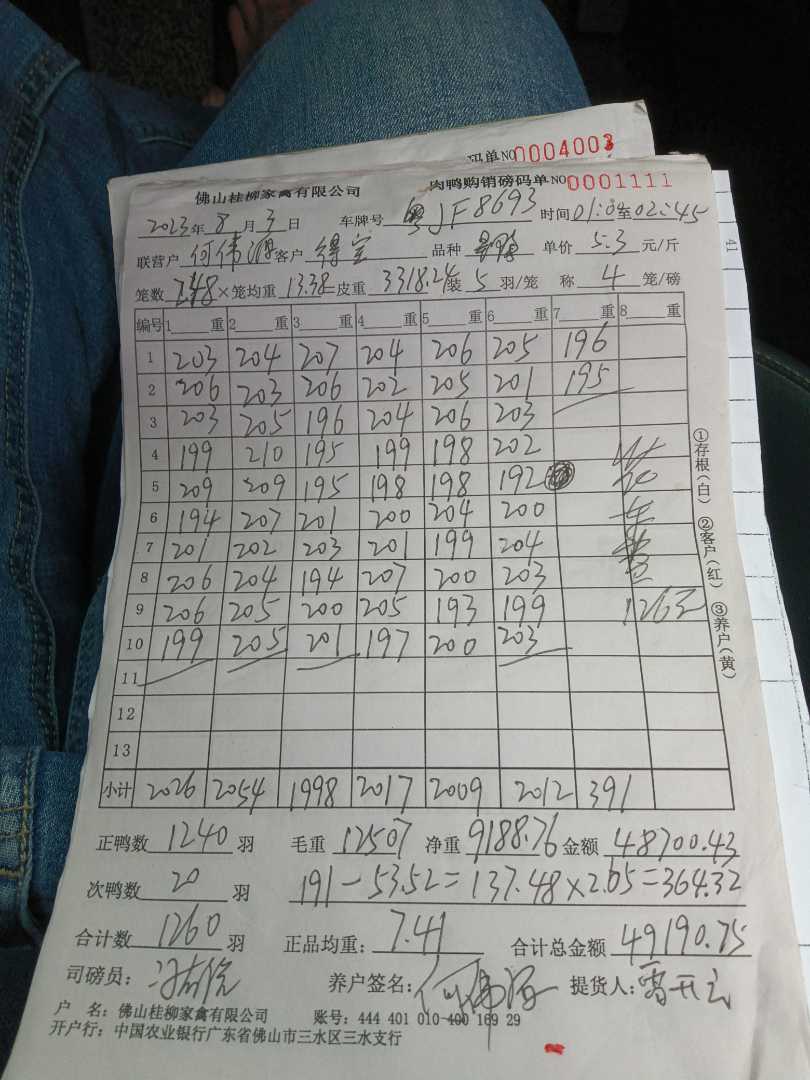 码单NO0004003
佛山桂柳家禽有限公司 肉鸭购销磅码单NO0001111
2023年8月3日 车牌号 粤JF8693 时间01:09至02:45
联营户 何伟源 客户 得宝 品种 单价 5.3 元/斤
笼数 248 ×笼均重 13.38 皮重 3318.24 装 5 羽/笼 称 4 笼/磅
编号 1 重 2 重 3 重 4 重 5 重 6 重 7 重 8 重
1 203 204 207 204 206 205 196
2 206 203 206 202 205 201 195
3 203 205 196 204 206 203
4 199 210 195 199 198 202
5 209 209 195 198 198 192
6 194 207 201 200 204 200
7 201 202 203 201 199 204
8 206 204 194 207 200 203
9 206 205 200 205 193 199
10 199 205 201 197 200 203
11
12
13
小计 2026 2054 1998 2017 2009 2012 391
①存根(白) ②客户(红) ③养户(黄)
正鸭数 1240 羽 毛重 12507 净重 9188.76 金额 48700.43
次鸭数 20 羽 191-53.52=137.48×2.65=364.32
合计数 1260 羽 正品均重: 7.41 合计总金额 49190.75
司磅员: 养户签名: 何伟源 提货人:
户 名: 佛山桂柳家禽有限公司 账号: 444 401 010 400 169 29
开户行: 中国农业银行广东省佛山市三水区三水支行
41